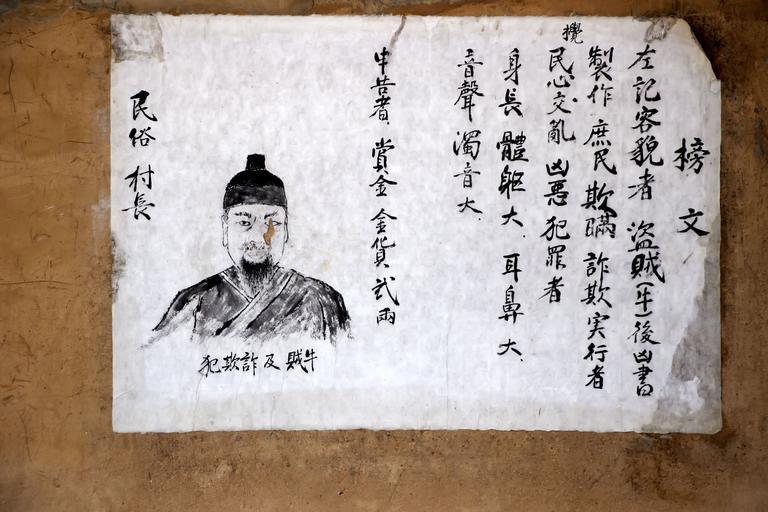 榜文
左記容貌者 盜賊(牛)後 凶書
製作 庶民 欺瞞 詐欺 実行者
攪
民心交亂 凶惡 犯罪者
身長 體軀大. 耳鼻大.
音聲 濁音大.
申告者 賞金 金貨 弐兩
牛賊 及 詐欺犯
民俗 村長